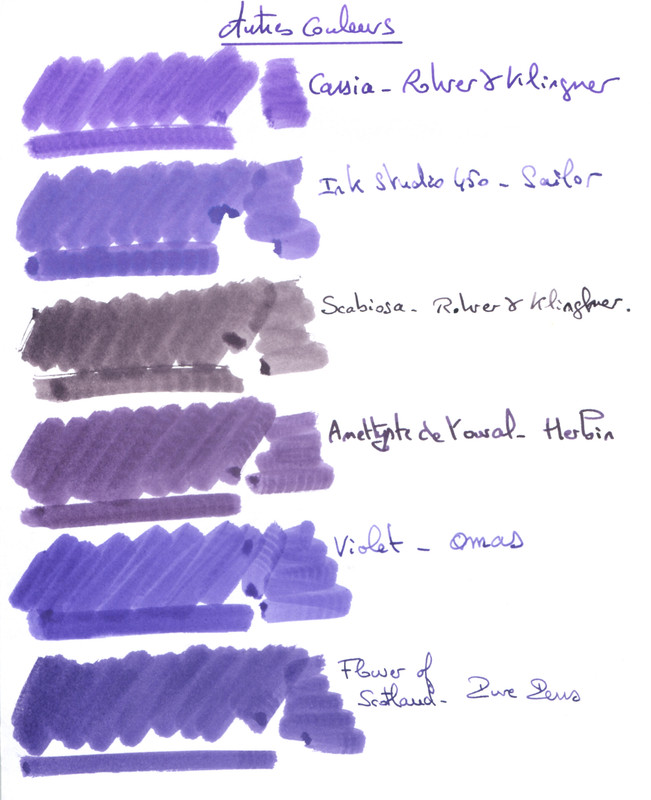 Autres Couleurs
Cassia - Rohrer & Klingner
Ink Studio 450 - Sailor
Scabiosa - Rohrer & Klingner.
Amethyste de l'Oural - Herbin
Violet - Omas
Flower of
Scotland - Pure Pens